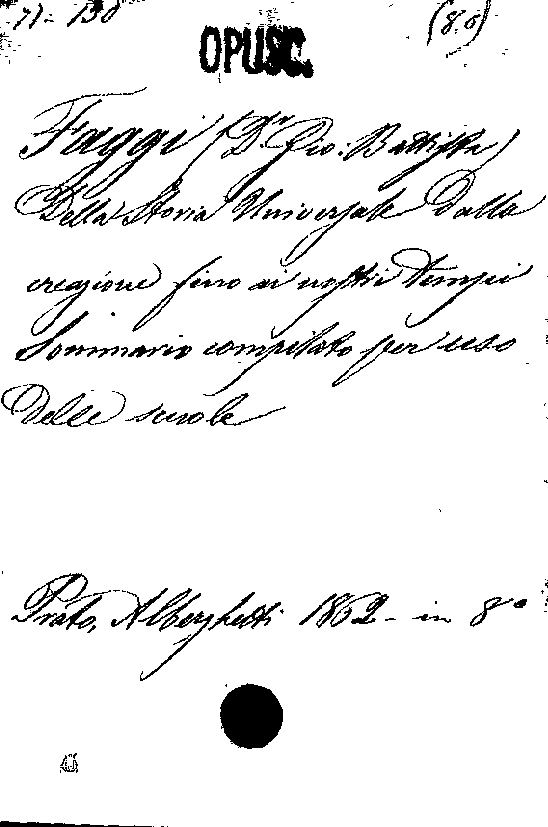 71-138 (8.6)
OPUSC.
Faggi (Dr. Gio: Battista)
Della Storia Universale dalla
creazione fino ai nostri tempi
Sommario compilato per uso
delle scuole
Prato, Alberghetti 1862 - in 8°